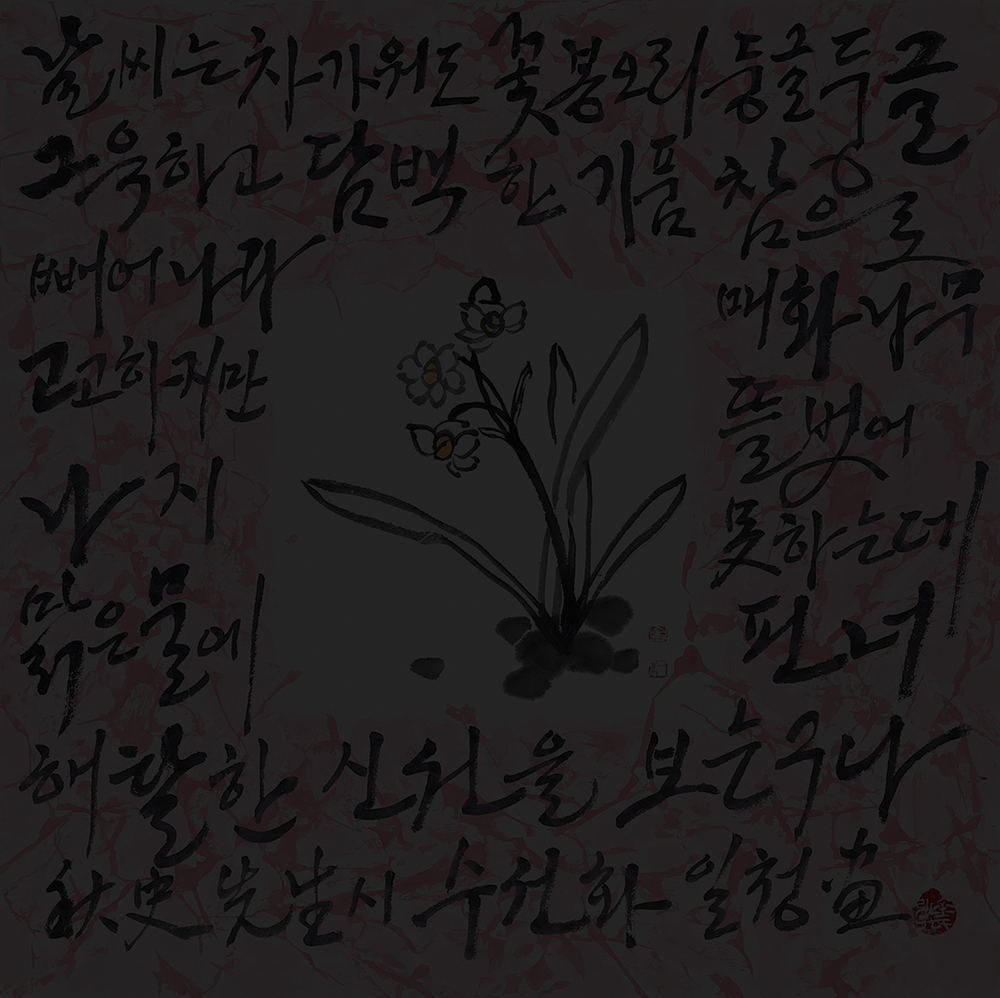 날씨는 차가워도 꽃봉오리 둥글둥글
그윽하고 담백한 기품 참으로
빼어나라
매화나무
고고하지만
뜰 벗어
나지
못하는데
맑은 물에
핀 너
해탈한 신선을 보는구나
秋史先生시 수선화 일청畵